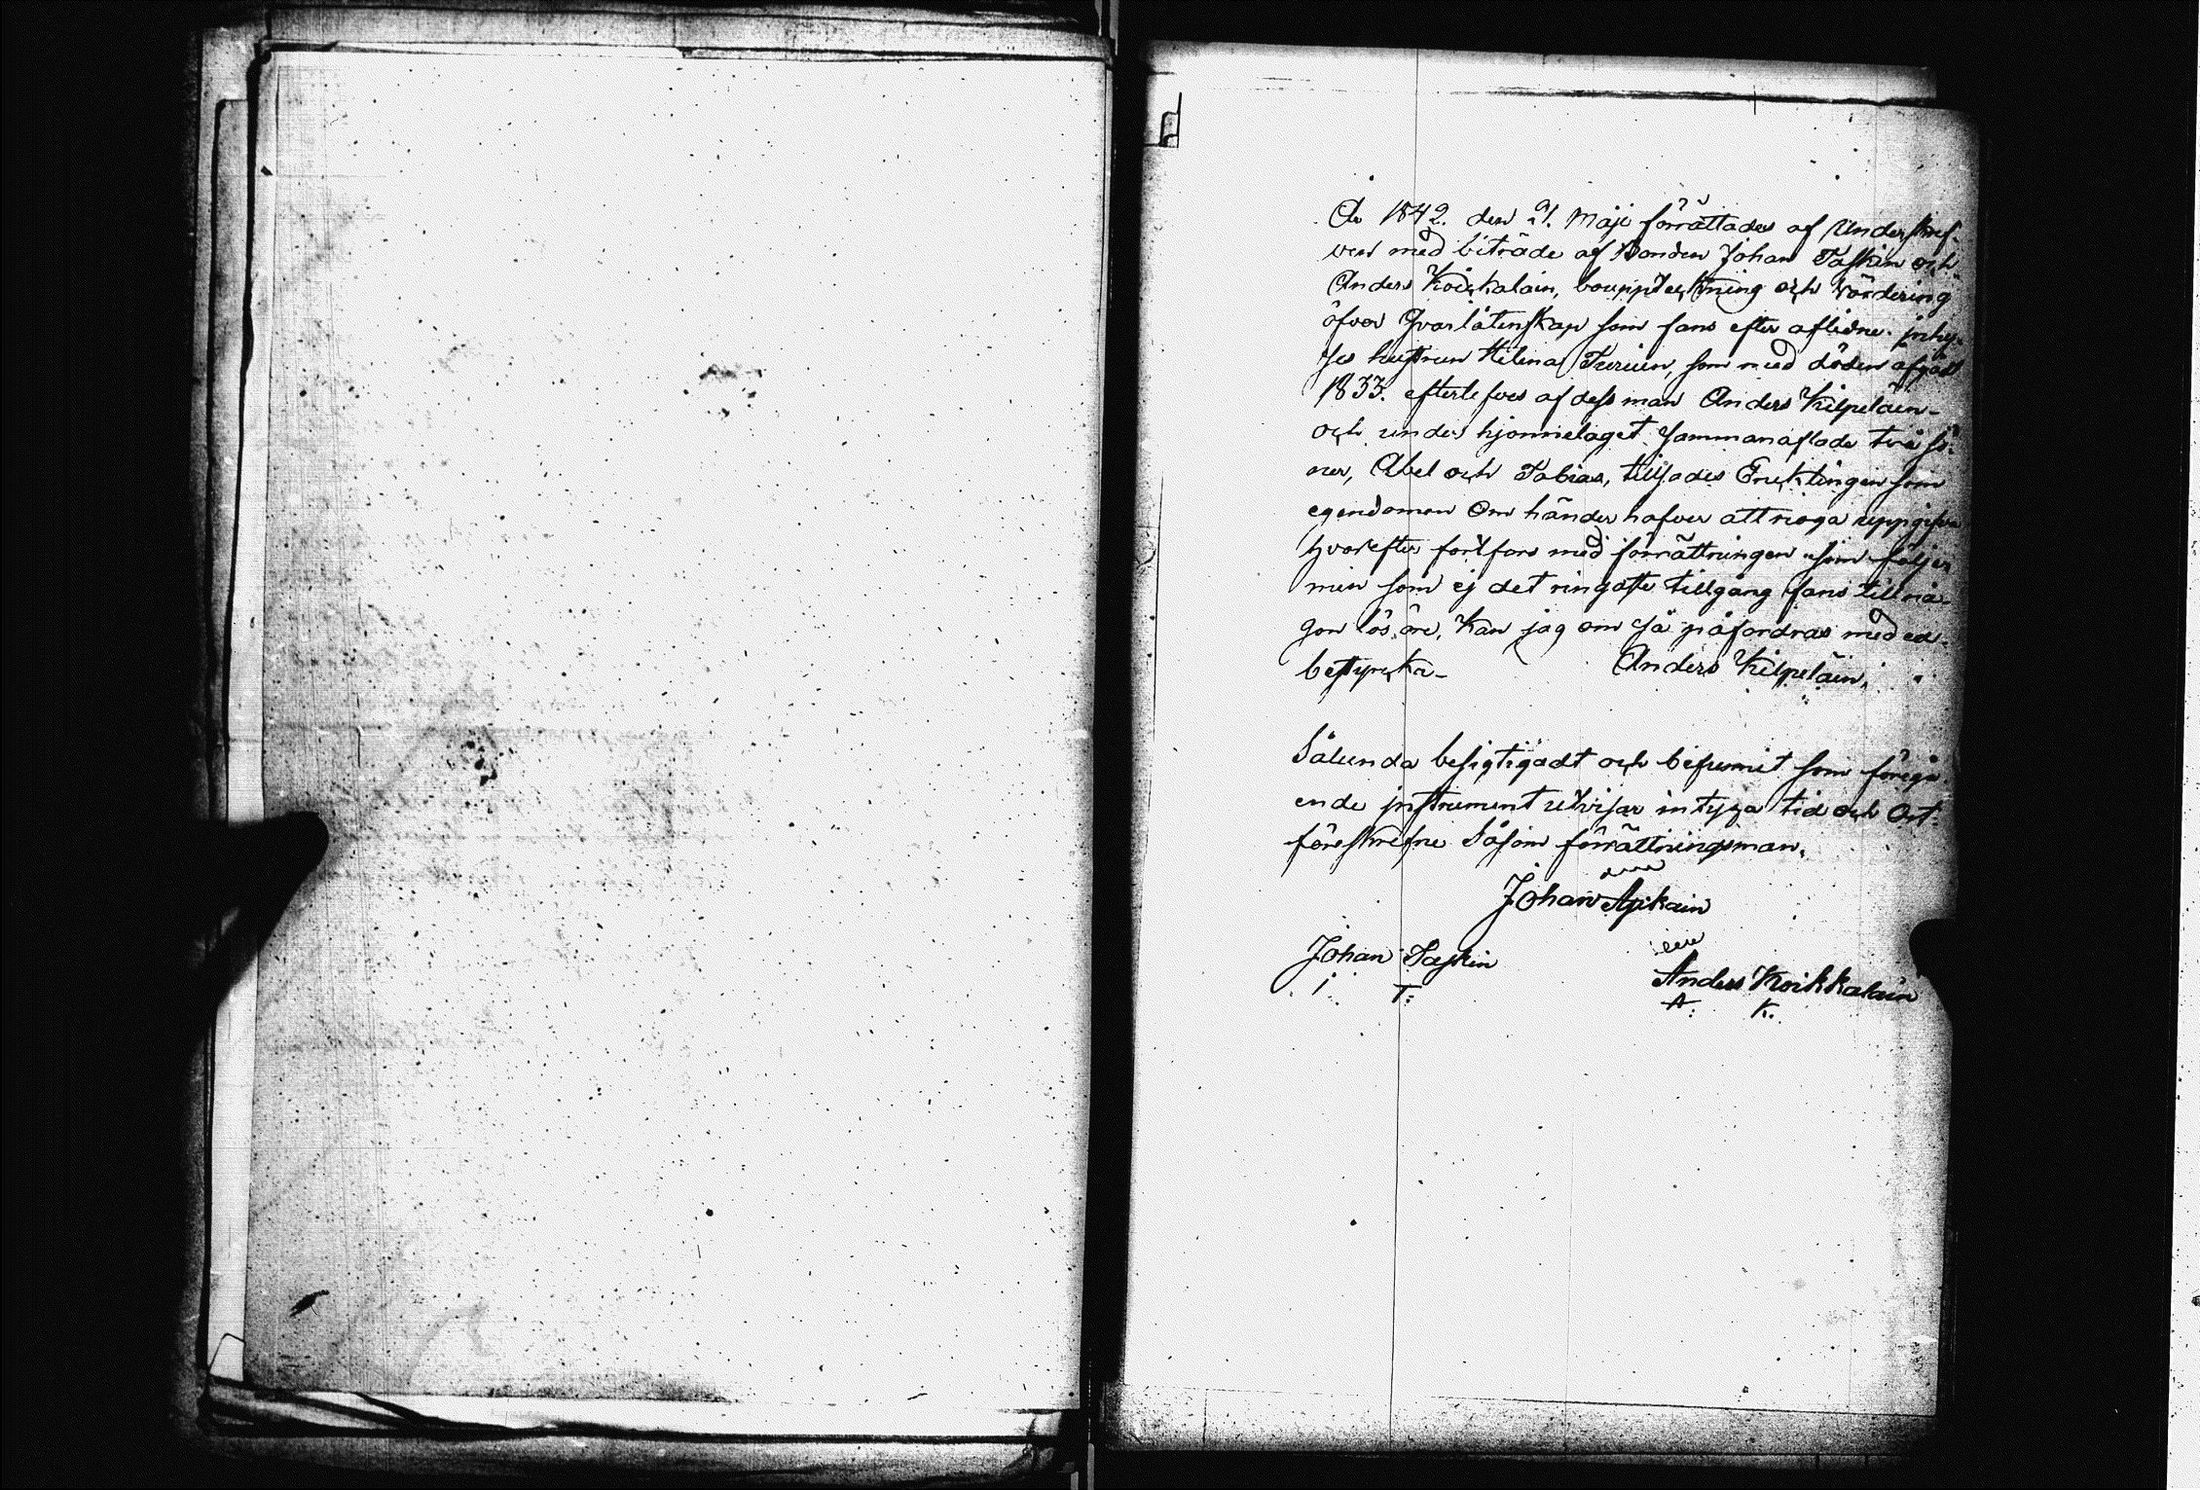 År 1842. den 21. Maji förrättades af Underskref-
ven med biträde af Bonden Johan Taskin och
Anders Koikkalain, bouppteckning och värdering
öfver Qvarlåtenskap som fans efter aflidne inhy-
ses hustrun Helena Turuin, som med döden afgådt
1833. efterlefves af dess man Anders Kilpeläin-
och under hjonnelaget sammanaflade två sö-
ner, Abel och Tobias, tillsades Enklingen som
egendomen Om händer hafver att noga uppgifva
hvarefter fortfors med förrättningen som följer
men som ej det ringaste tillgång fans till nå-
gon lösöre, Kan jag om så påfordras med ed-
bestyrka- Anders Kilpeläin.
Sålunda besigtigadt och befunnit som föregå-
ende instrument utvisar intyga tid och Ort.
föreskrefne Såsom förrättningsman.
Johan
Johan Taskin
Anders Koikkalain
i T:
A: K.